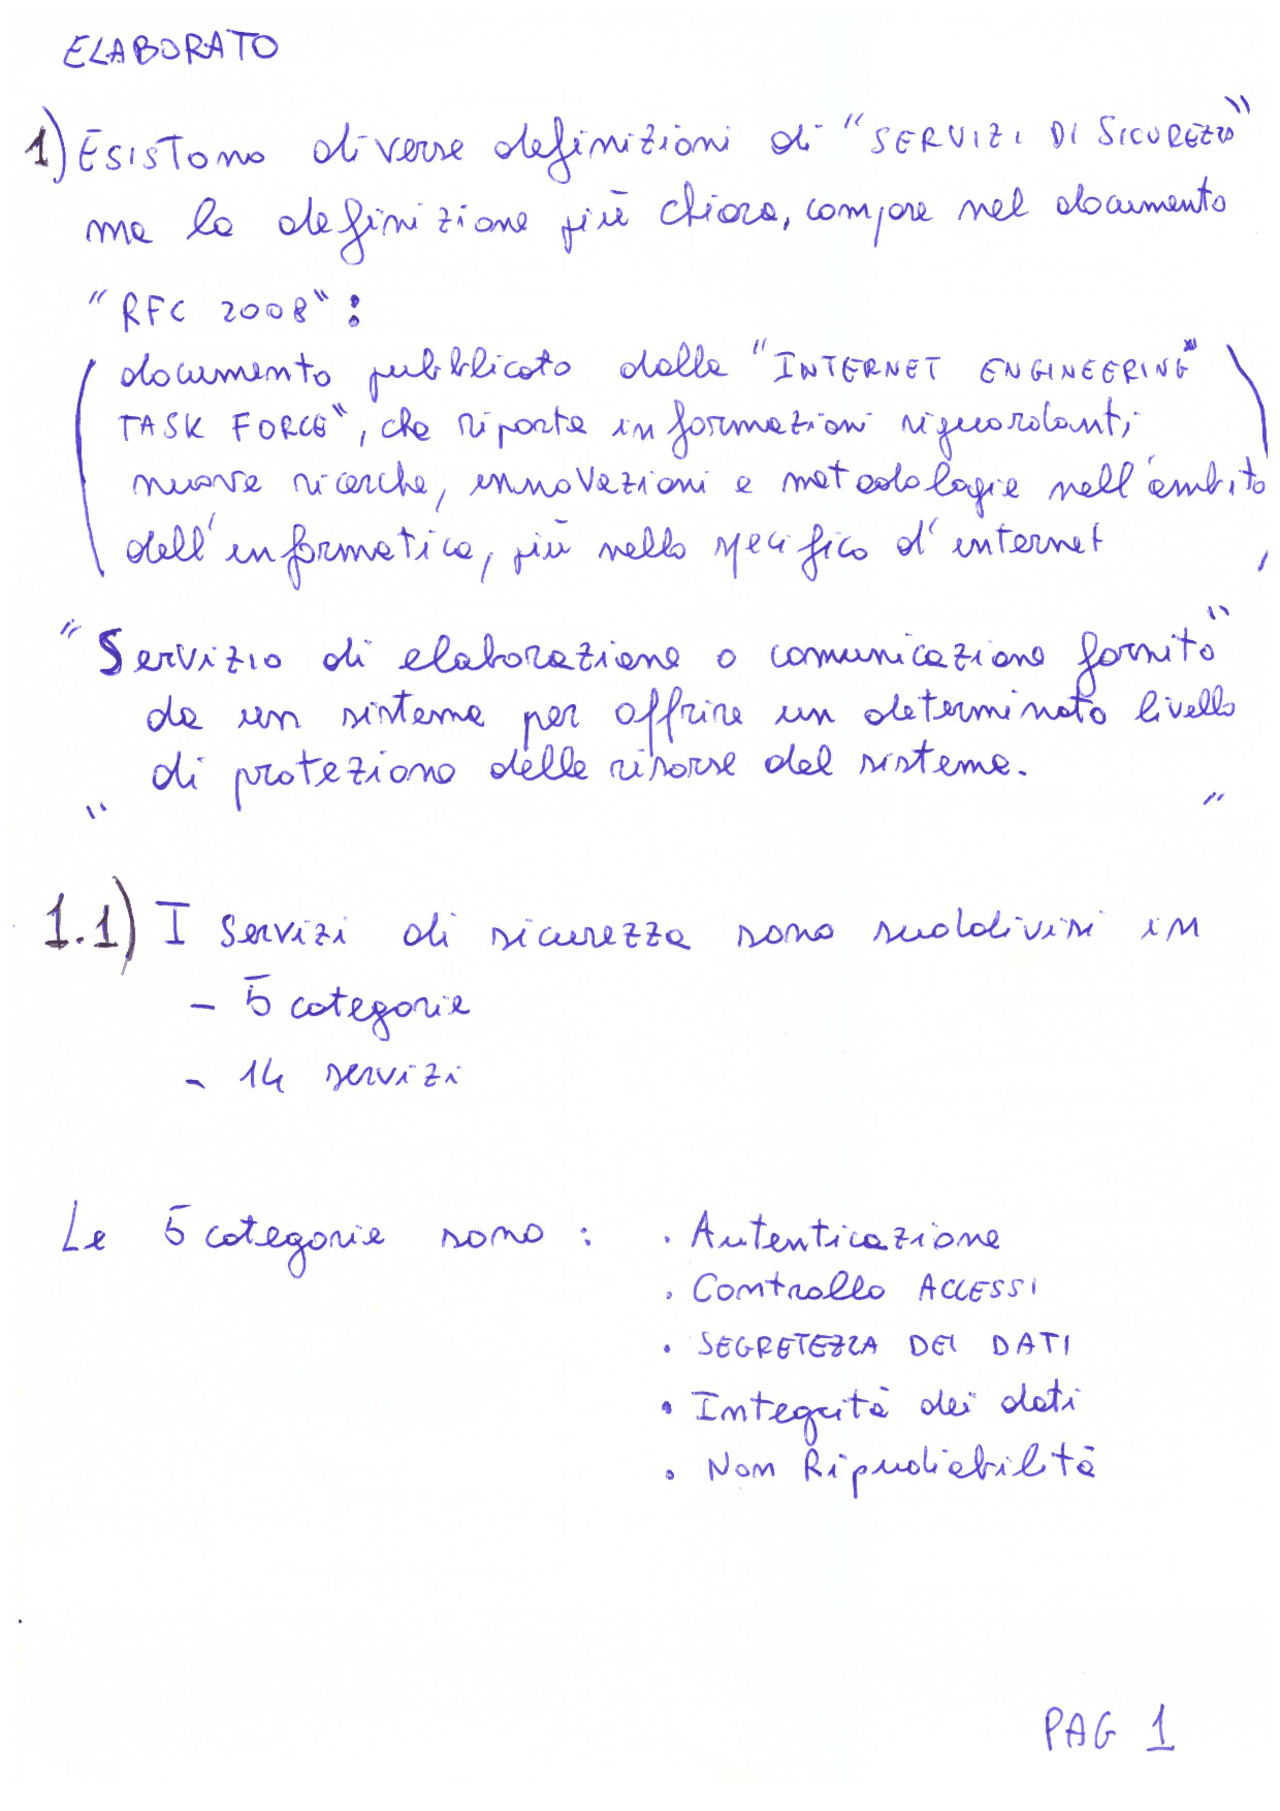 ELABORATO
1) Esistono diverse definizioni di "SERVIZI DI SICUREZZA"
ma la definizione più chiara, compare nel documento
"RFC 2008":
(documento pubblicato dalla "INTERNET ENGINEERING"
TASK FORCE", che riporta informazioni riguardanti
nuove ricerche, innovazioni e metodologie nell'ambito
dell'informatica, più nello specifico d'internet)
"Servizio di elaborazione o comunicazione fornito"
da un sistema per offrire un determinato livello
di protezione delle risorse del sistema.
" "
1.1) I servizi di sicurezza sono suddivisi in
- 5 categorie
- 14 servizi
Le 5 categorie sono : . Autenticazione
. Controllo ACCESSI
. SEGRETEZZA DEI DATI
. Integrità dei dati
. Non Ripudiabilità
PAG 1